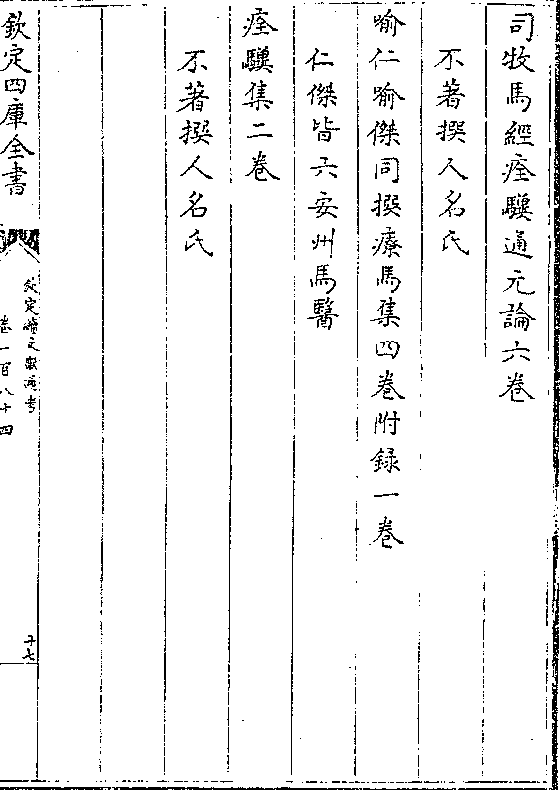 司牧馬經痊驥通元論六卷
不著撰人名氏
喻仁喻傑同撰療馬集四卷附録一卷
仁傑皆六安州馬醫
痊驥集二卷
不著撰人名氏
欽定四庫全書
欽定續文獻通考
卷一百八十四
十七